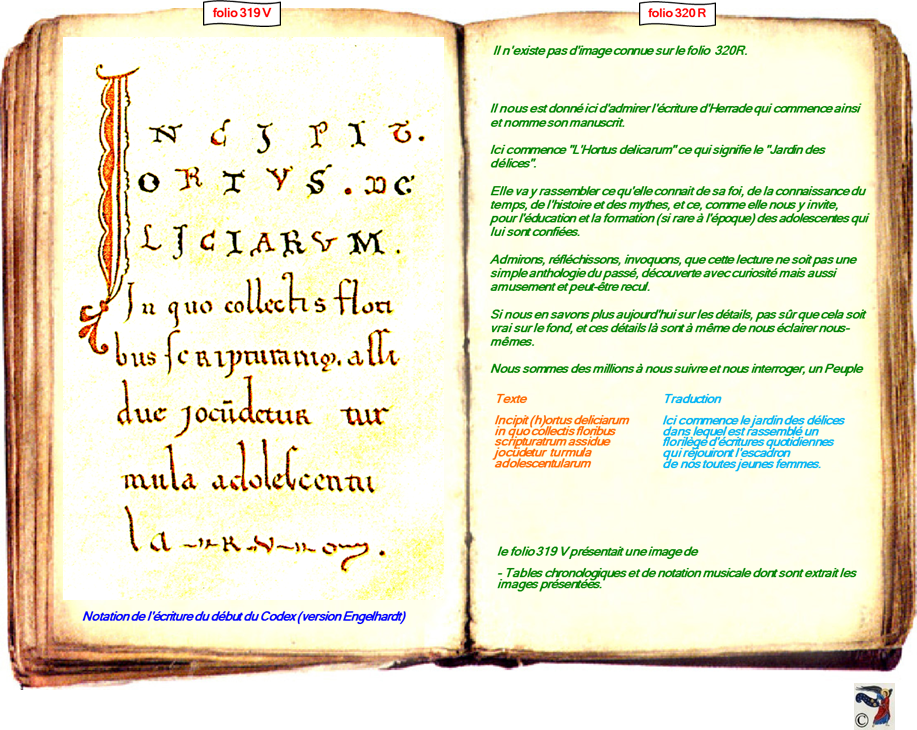 folio 319 V
INCIPIT.
ORTVS. DE
LICIARUM.
In quo collectis flori
bus scripturarum, assi
due jocūdetur tur
mula adolescentu
la rum.
Notation de l'écriture du début du Codex (version Engelhardt)
folio 320 R
Il n'existe pas d'image connue sur le folio 320R.
Il nous est donné ici d'admirer l'écriture d'Herrade qui commence ainsi
et nomme son manuscrit.
Ici commence "L'Hortus delicarum" ce qui signifie le "Jardin des
délices".
Elle va y rassembler ce qu'elle connait de sa foi, de la connaissance du
temps, de l'histoire et des mythes, et ce, comme elle nous y invite,
pour l'éducation et la formation (si rare à l'époque) des adolescentes qui
lui sont confiées.
Admirons, réfléchissons, invoquons, que cette lecture ne soit pas une
simple anthologie du passé, découverte avec curiosité mais aussi
amusement et peut-être recul.
Si nous en savons plus aujourd'hui sur les détails, pas sûr que cela soit
vrai sur le fond, et ces détails là sont à même de nous éclairer nous-
mêmes.
Nous sommes des millions à nous suivre et nous interroger, un Peuple
Texte
Incipit (h)ortus deliciarum
in quo collectis floribus
scripturatrum assidue
jocūdetur turmula
adolescentularum
Traduction
Ici commence le jardin des délices
dans lequel est rassemblé un
florilège d'écritures quotidiennes
qui réjouiront l'escadron
de nos toutes jeunes femmes.
le folio 319 V présentait une image de
- Tables chronologiques et de notation musicale dont sont extrait les
images présentées.
©